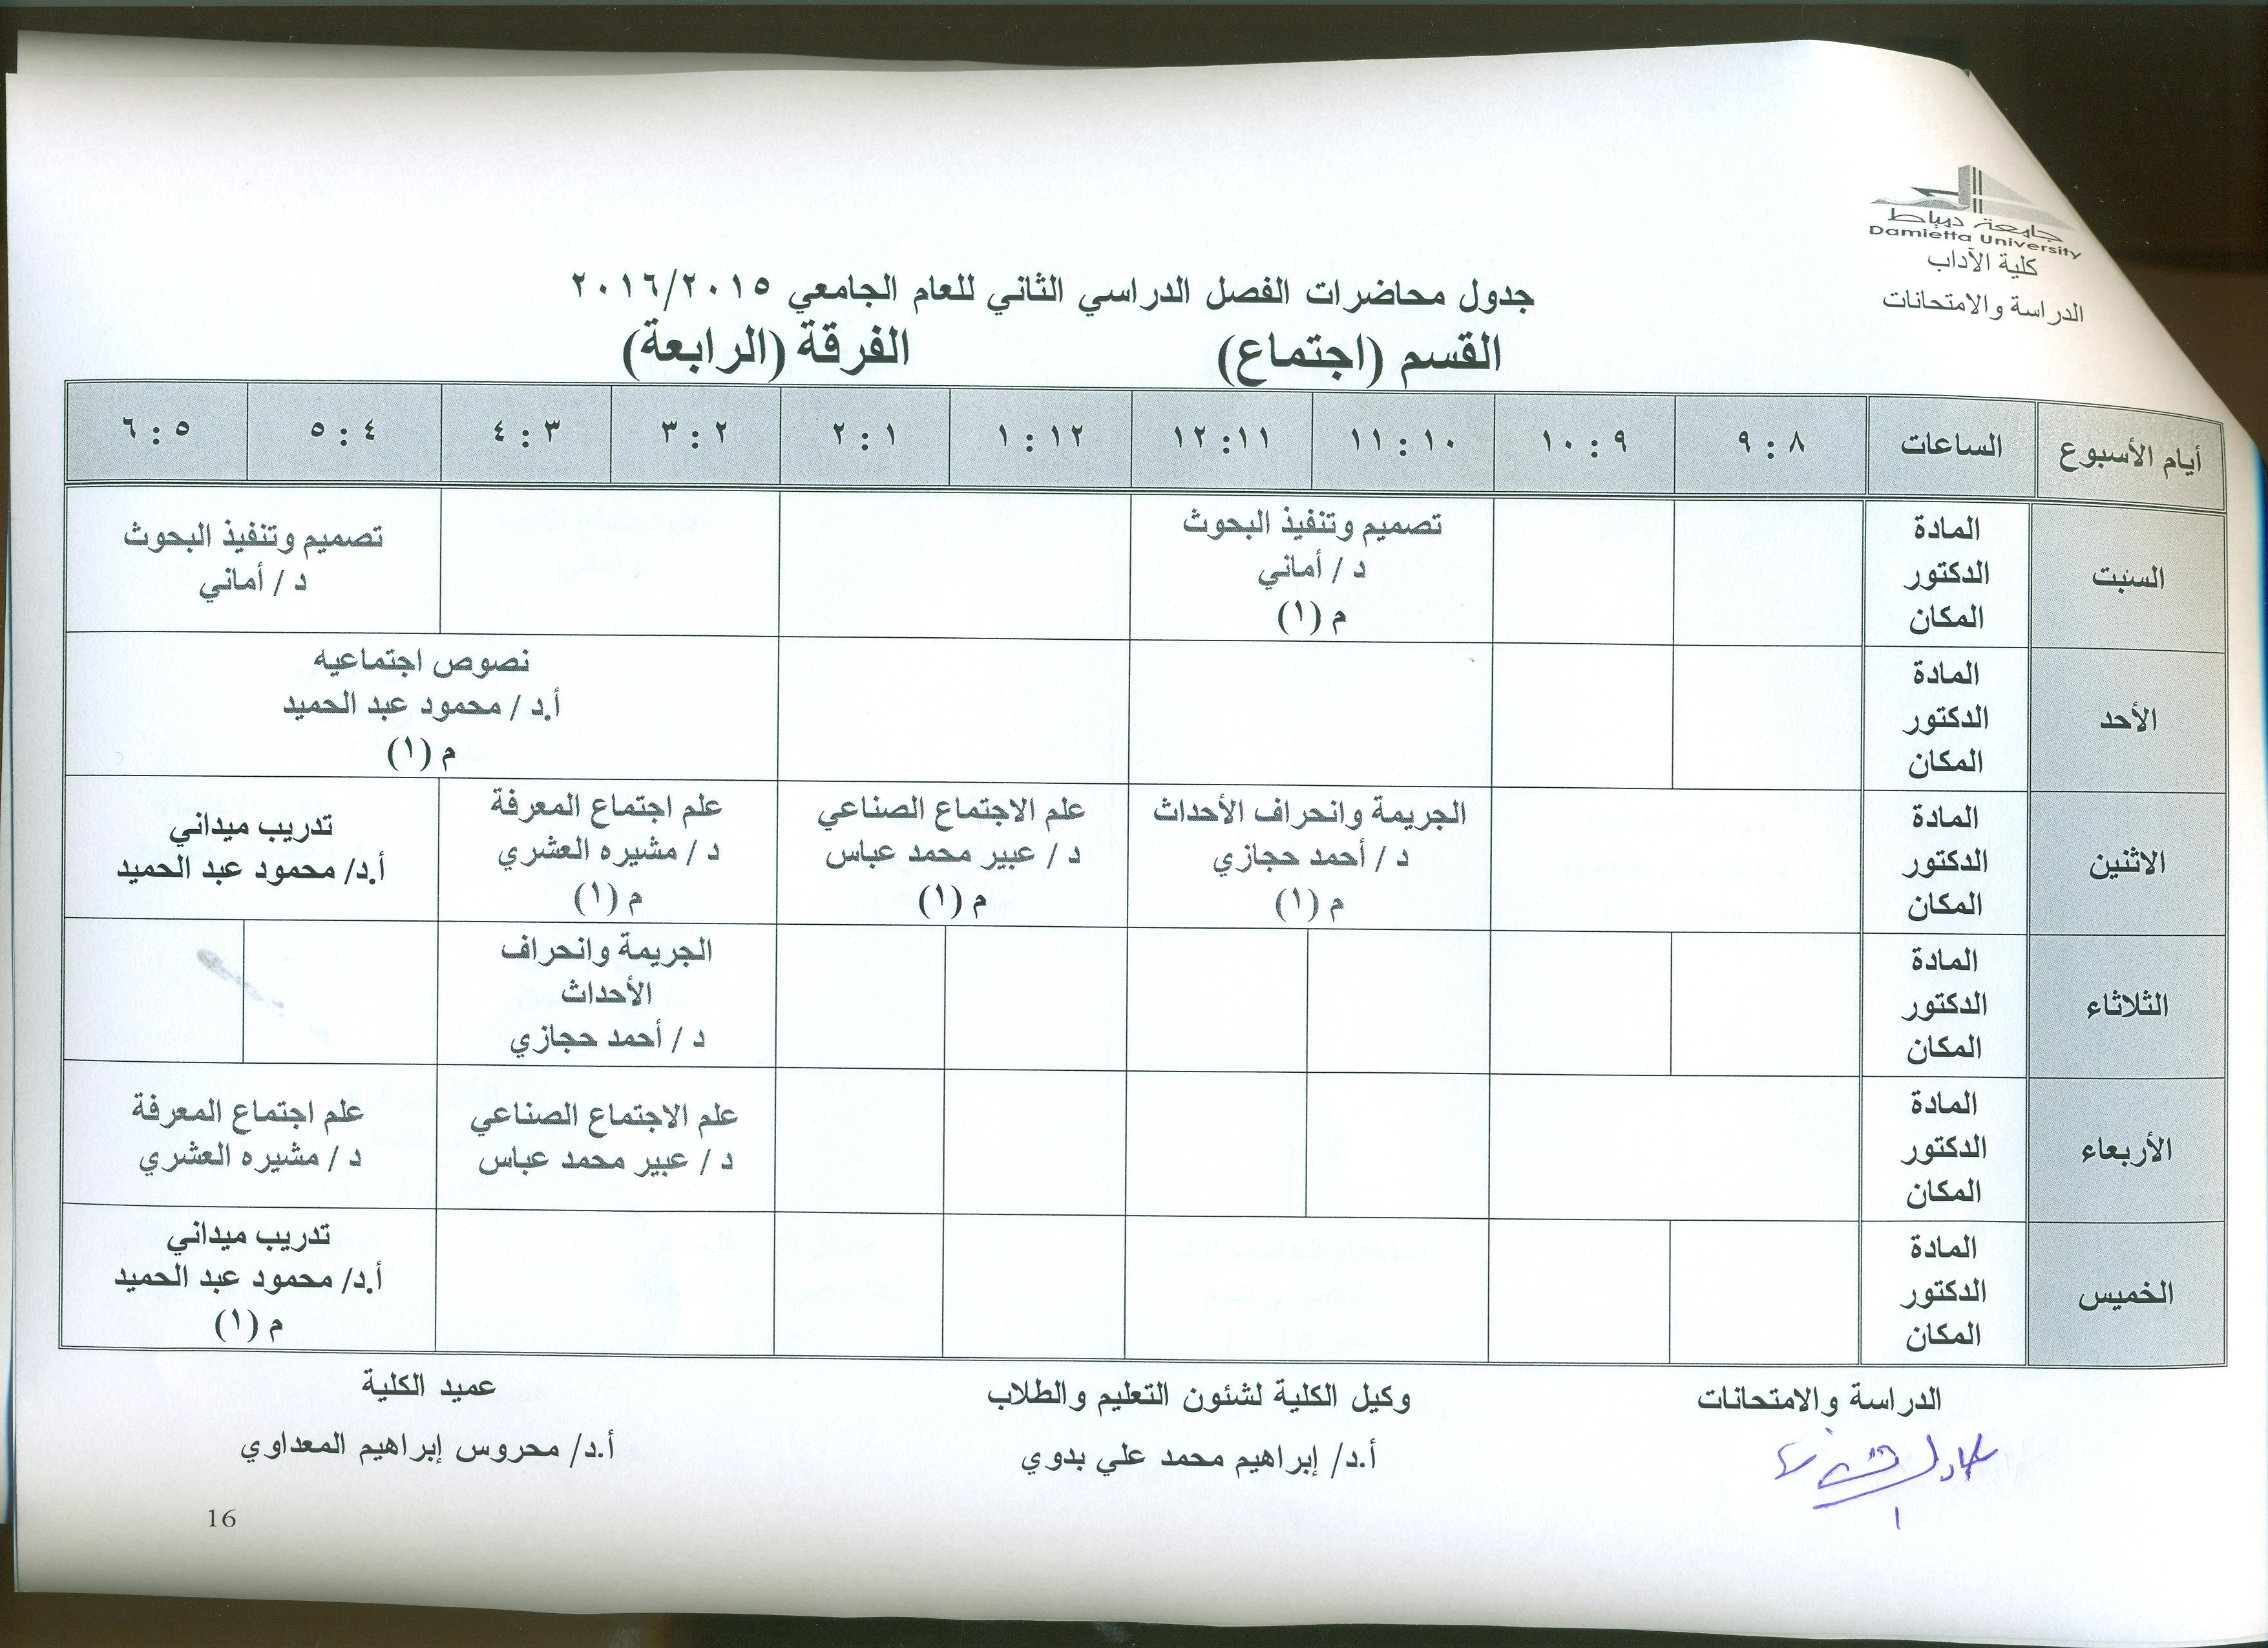 جامعة دمياط
Damietta University
كلية الآداب
الدراسة والامتحانات
جدول محاضرات الفصل الدراسي الثاني للعام الجامعي ٢٠١٦/٢٠١٥
القسم (اجتماع) الفرقة (الرابعة)
أيام الأسبوع الساعات ٨ : ٩ ٩ : ١٠ ١٠ : ١١ ١١: ١٢ ١٢ : ١ ١ : ٢ ٢ : ٣ ٣ : ٤ ٤ : ٥ ٥ : ٦
السبت
المادة
الدكتور
المكان
تصميم وتنفيذ البحوث
د / أماني
م (١)
تصميم وتنفيذ البحوث
د / أماني
الأحد
المادة
الدكتور
المكان
نصوص اجتماعيه
أ.د / محمود عبد الحميد
م (١)
الاثنين
المادة
الدكتور
المكان
الجريمة وانحراف الأحداث
د / أحمد حجازي
م (١)
علم الاجتماع الصناعي
د / عبير محمد عباس
م (١)
علم اجتماع المعرفة
د / مشيره العشري
م (١)
تدريب ميداني
أ.د/ محمود عبد الحميد
الثلاثاء
المادة
الدكتور
المكان
الجريمة وانحراف
الأحداث
د / أحمد حجازي
الأربعاء
المادة
الدكتور
المكان
علم الاجتماع الصناعي
د / عبير محمد عباس
علم اجتماع المعرفة
د / مشيره العشري
الخميس
المادة
الدكتور
المكان
تدريب ميداني
أ.د/ محمود عبد الحميد
م (١)
الدراسة والامتحانات
وكيل الكلية لشئون التعليم والطلاب
أ.د/ إبراهيم محمد علي بدوي
عميد الكلية
أ.د/ محروس إبراهيم المعداوي
16